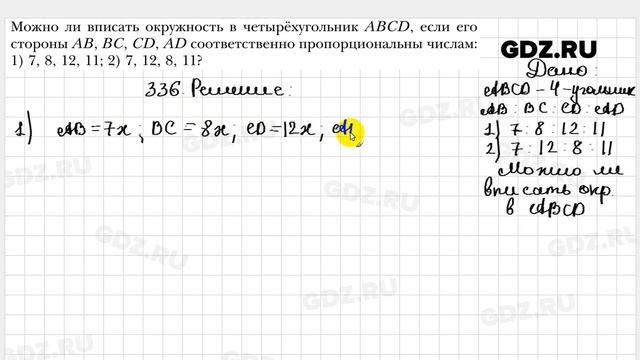 Можно ли вписать окружность в четырёхугольник ABCD, если его
стороны AB, BC, CD, AD соответственно пропорциональны числам:
1) 7, 8, 12, 11; 2) 7, 12, 8, 11?
GDZ.RU
Дано:
ABCD - 4-угольник
AB : BC : CD : AD
1) 7 : 8 : 12 : 11
2) 7 : 12 : 8 : 11
Можно ли
вписать окр.
в ABCD
336. Решение:
1) AB = 7x ; BC = 8x ; CD = 12x , A
GDZ.RU
GDZ.RU
GDZ.RU
GDZ.RU
GDZ.RU
GDZ.RU